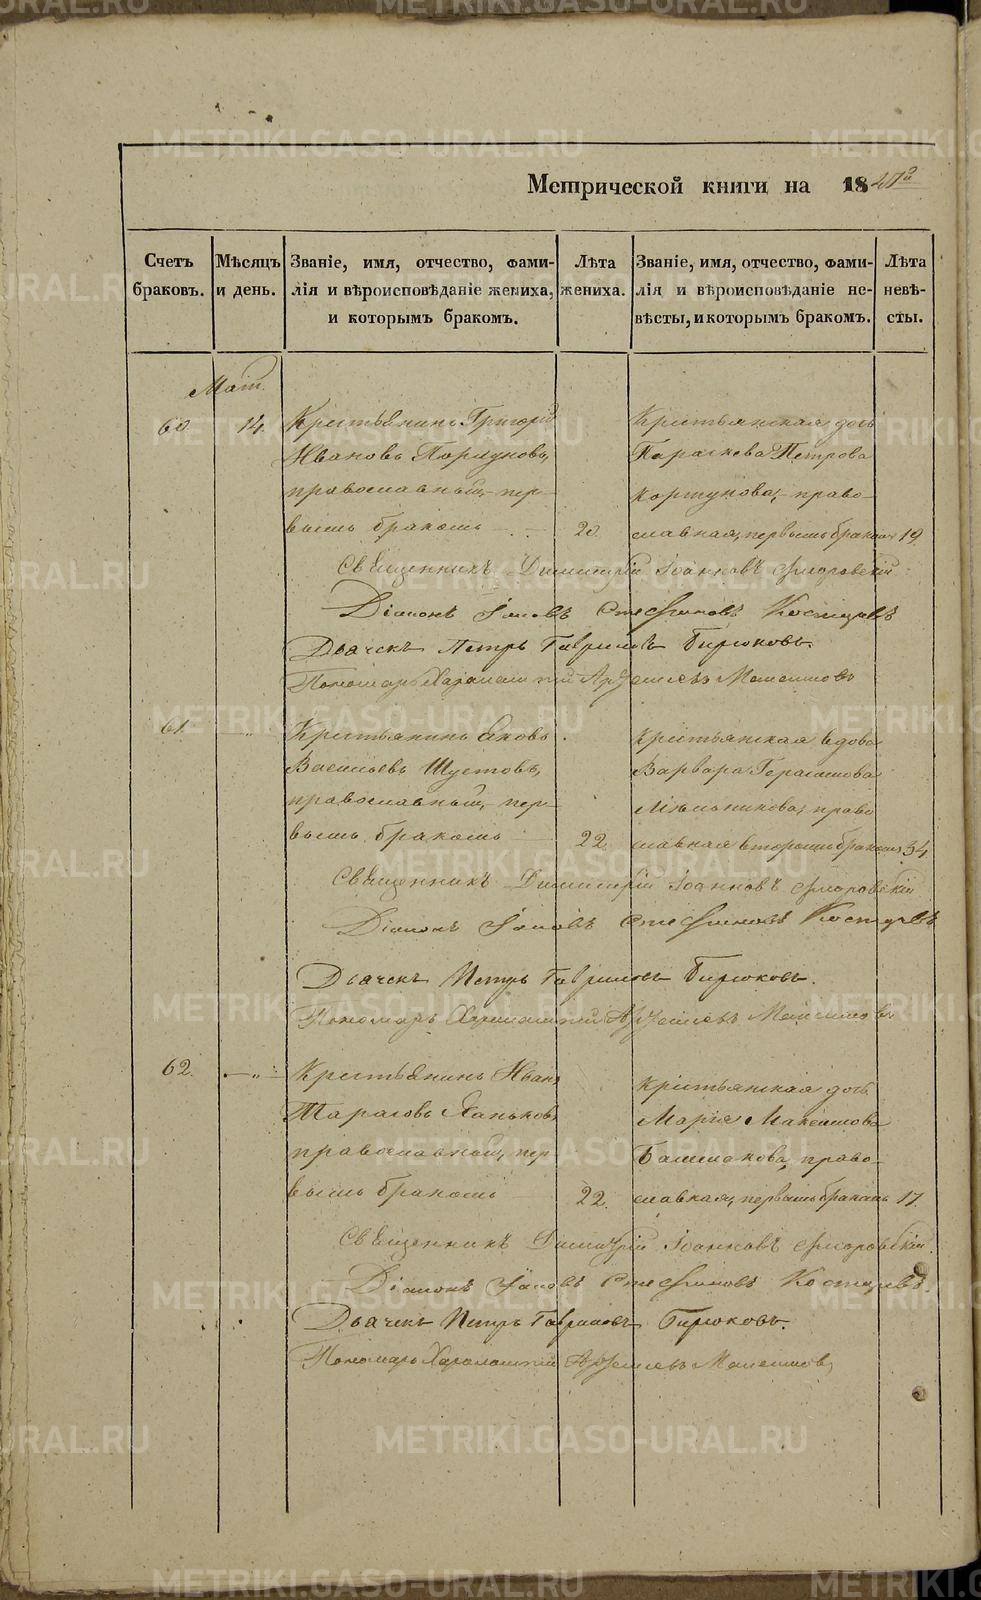 METRIKI.GASO-URAL.RU
Метрической книги на 18
Счетъ браковъ.
Мѣсяцъ и день.
Званіе, имя, отчество, фами-
лія и вѣроисповѣданіе жениха,
и которымъ бракомъ.
Лѣта
жениха.
Званіе, имя, отчество, фами-
лія и вѣроисповѣданіе не-
вѣсты, и которымъ бракомъ.
Лѣта
невѣ-
сты.
60. 14. Крестьянинъ Григорій
Ивановъ
православный, пер-
вымъ бракомъ 20.
Крестьянская дочь
Параскева Петрова
Коршунова, право-
славная, первымъ бракомъ 19.
Священникъ Димитрій Іоанновъ
Діаконъ Іаковъ Стефановъ
Дьячекъ Петръ Гавриловъ Бирюковъ.
Пономарь Харалампій
61. —„—
Крестьянинъ Яковъ
Васильевъ Шустовъ,
православный, пер-
вымъ бракомъ 22.
Крестьянская вдова
Варвара Герасимова
Мѣльникова, право
славная вторымъ бракомъ 34
Священникъ Димитрій Іоанновъ
Діаконъ Іаковъ Стефановъ
Дьячекъ Петръ Гавриловъ Бирюковъ.
Пономарь Харалампій
62. —„—
Крестьянинъ Иванъ
Тарасовъ Ханьковъ
православный, пер
вымъ бракомъ 22.
Крестьянская дочь
Марія Максимова
Башмакова, право-
славная, первымъ бракомъ 17.
Священникъ Димитрій Іоанновъ
Діаконъ Іаковъ Стефановъ
Дьячекъ Петръ Гавриловъ Бирюковъ.
Пономарь Харалампій